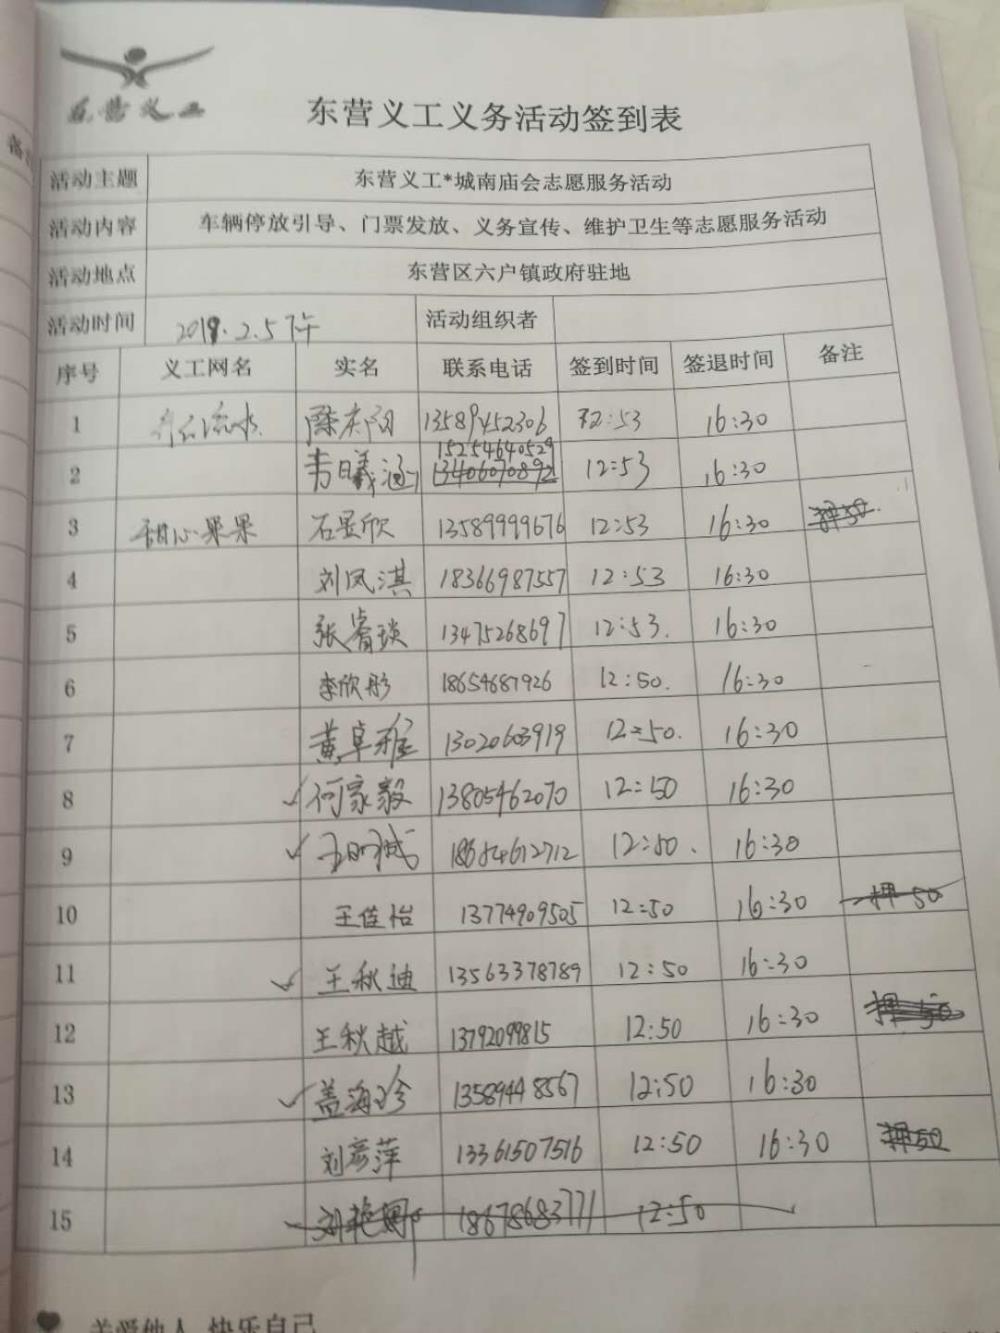 东营义工
东营义工义务活动签到表
活动主题 东营义工*城南庙会志愿服务活动
活动内容 车辆停放引导、门票发放、义务宣传、维护卫生等志愿服务活动
活动地点 东营区六户镇政府驻地
活动时间 2019.2.5下午 活动组织者
序号 义工网名 实名 联系电话 签到时间 签退时间 备注
1 行云流水 13589452306 12:53 16:30
15254640529
2 韦曦涵 13406070892 12:53 16:30
3 甜心果果 石昱欣 13589999676 12:53 16:30 押50
4 刘凤淇 18366987557 12:53 16:30
5 张睿琰 13475268697 12:53. 16:30
6 李欣彤 18654687926 12:50. 16:30
7 黄卓雅 13020603919 12:50. 16:30
8 ✓何家毅 13805462070 12:50 16:30
9 ✓ 18654612712 12:50. 16:30
10 王佳怡 13774909505 12:50 16:30 押50
11 ✓王秋迪 13563378789 12:50 16:30
12 王秋越 13792099815 12:50 16:30 押50
13 ✓盖海珍 13589448567 12:50 16:30
14 刘彦萍 13361507516 12:50 16:30 押50
15 刘艳娜 18678683771 12:50
关爱他人 快乐自己